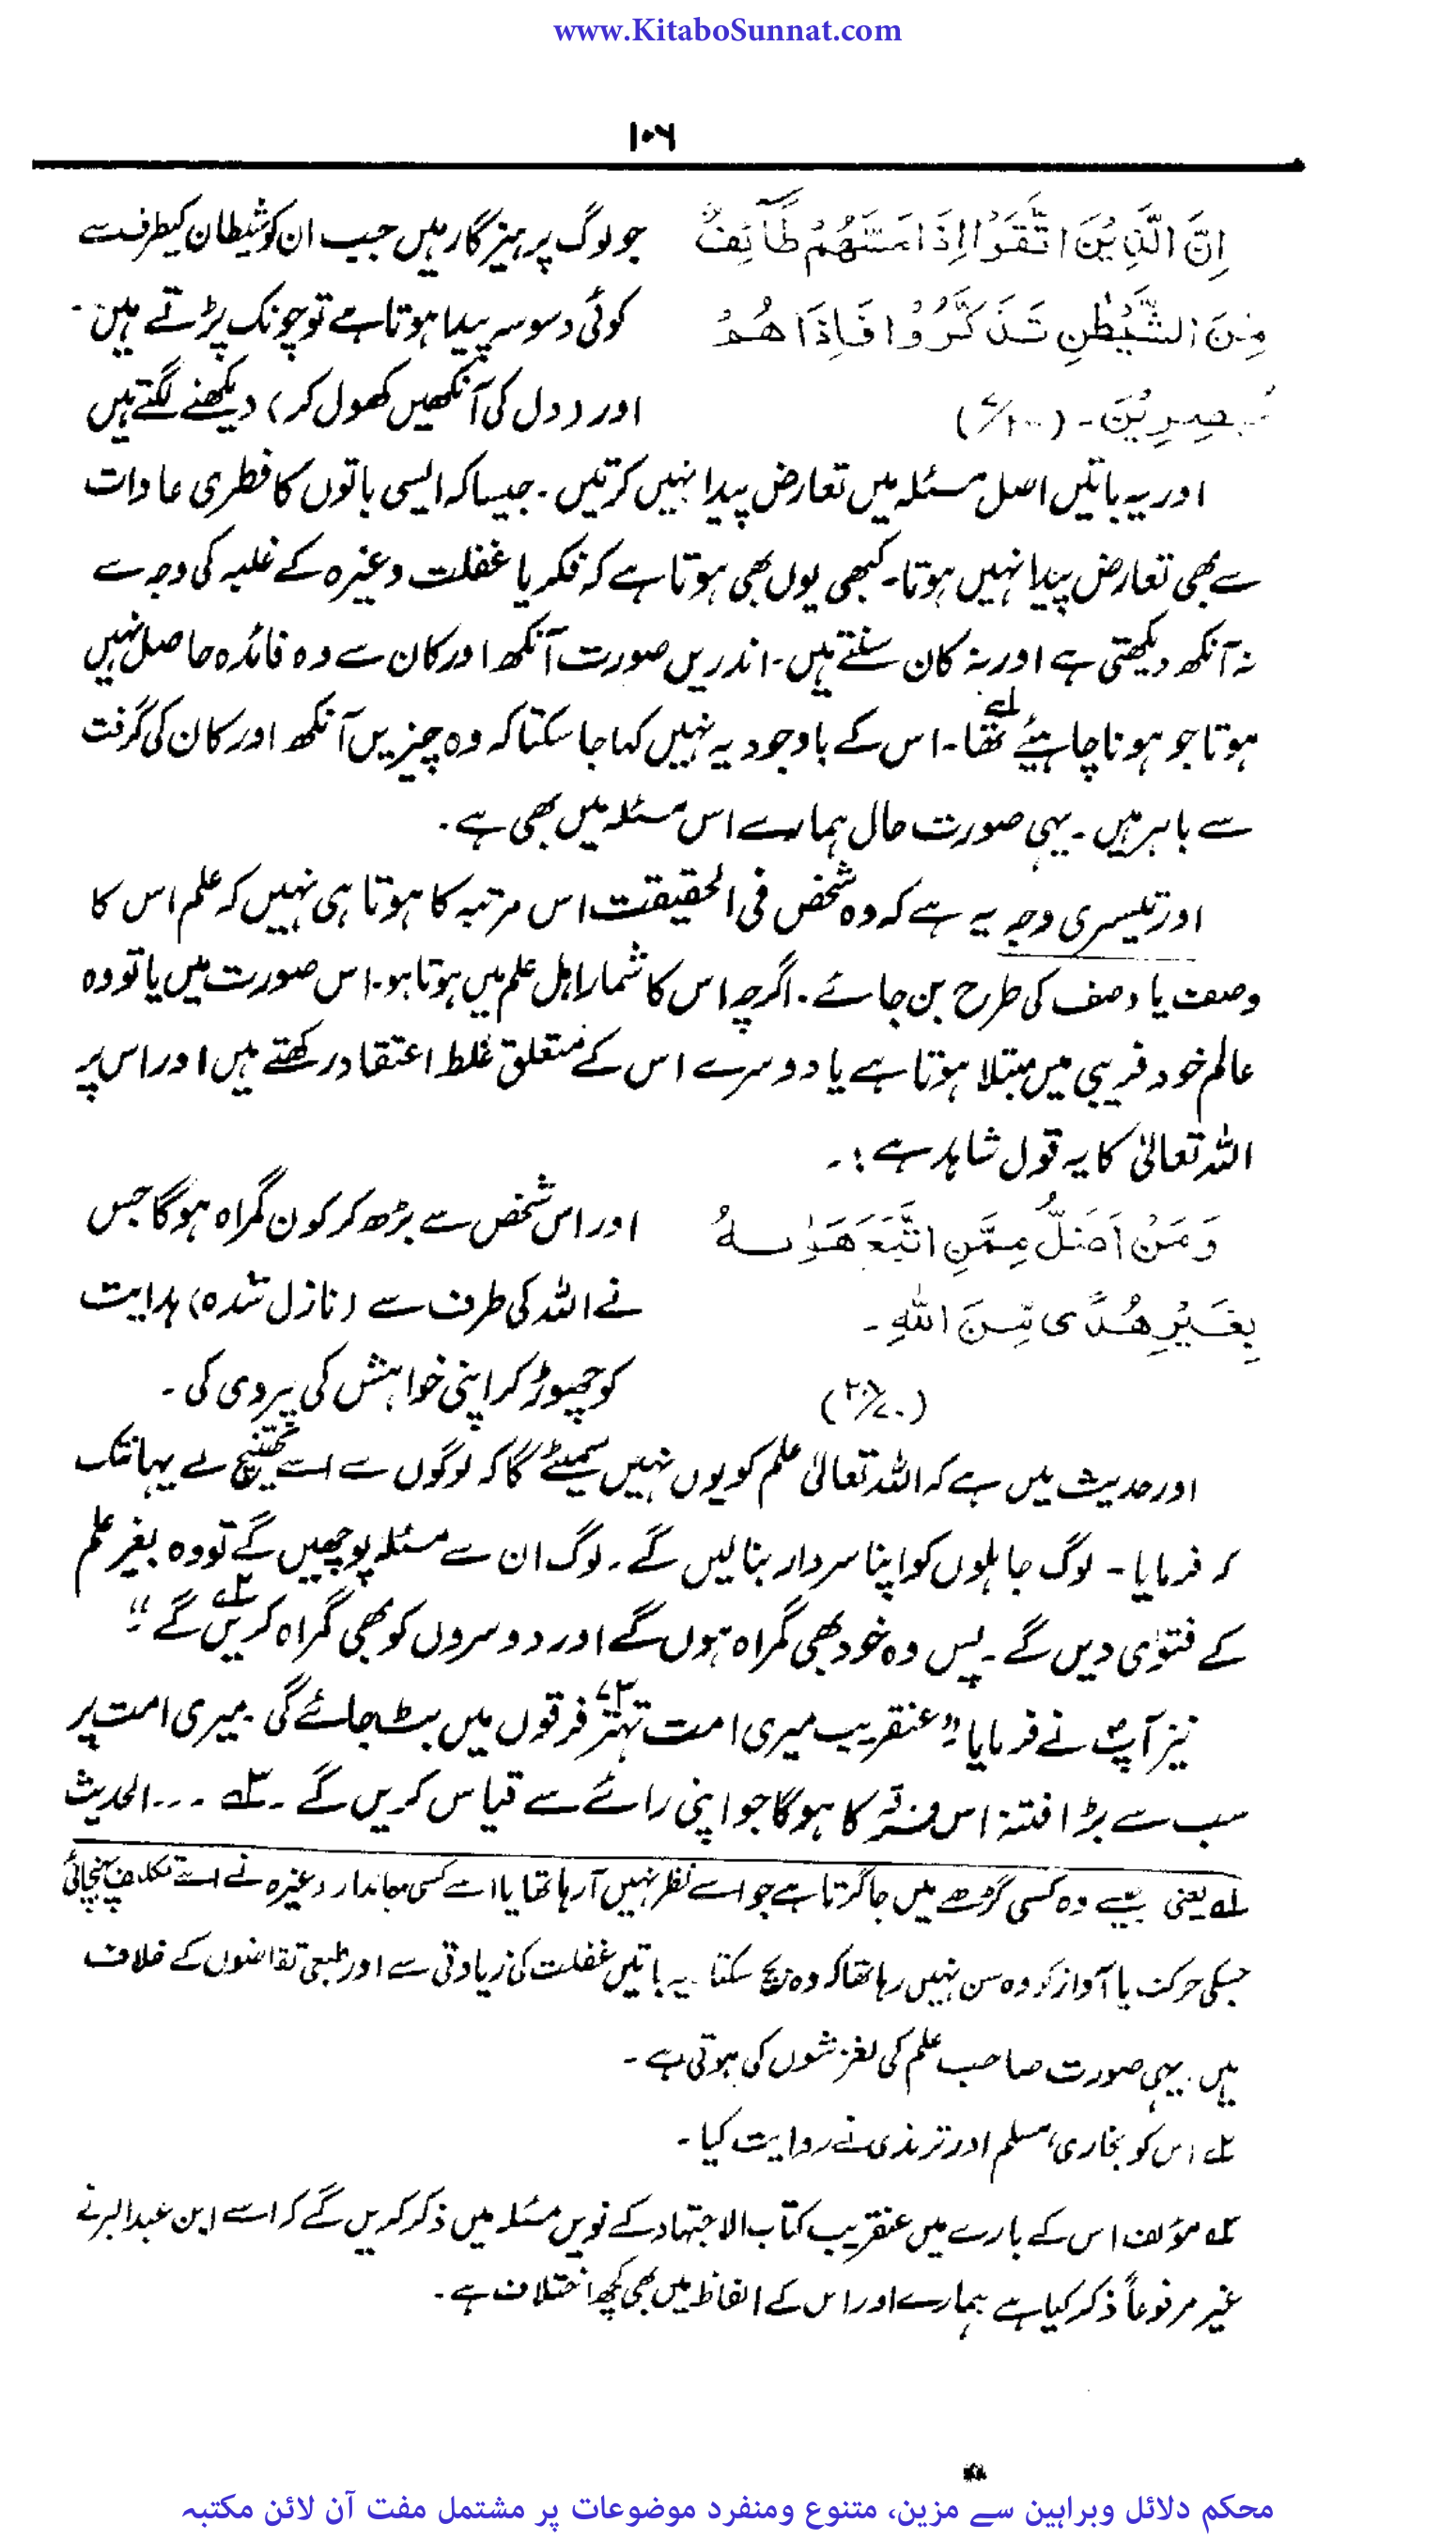 www.KitaboSunnat.com
۱۰۶
اِنَّ الَّذِیْنَ اتَّقَوْا اِذَا مَسَّهُمْ طَآئِفٌ
مِّنَ الشَّیْطٰنِ تَذَكَّرُوْا فَاِذَا هُمْ
مُّبْصِرِیْنَ۔ (
جو لوگ پرہیزگار ہیں جب ان کو شیطان کیطرف سے
کوئی وسوسہ پیدا ہوتا ہے تو چونک پڑتے ہیں۔
اور (دل کی آنکھیں کھول کر) دیکھنے لگتے ہیں
اور یہ باتیں اصل مسئلہ میں تعارض پیدا نہیں کرتیں۔ جیسا کہ ایسی باتوں کا فطری عادات
سے بھی تعارض پیدا نہیں ہوتا۔ کبھی یوں بھی ہوتا ہے کہ فکر یا غفلت وغیرہ کے غلبہ کی وجہ سے
نہ آنکھ دیکھتی ہے اور نہ کان سنتے ہیں۔ اندریں صورت آنکھ اور کان سے وہ فائدہ حاصل نہیں
ہوتا جو ہونا چاہیئے تھا۔ لہ اس کے باوجود یہ نہیں کہا جا سکتا کہ وہ چیزیں آنکھ اور کان کی گرفت
سے باہر ہیں۔ یہی صورت حال ہمارے اس مسئلہ میں بھی ہے۔
اور تیسری وجہ یہ ہے کہ وہ شخص فی الحقیقت اس مرتبہ کا ہوتا ہی نہیں کہ علم اس کا
وصف یا وصف کی طرح بن جائے۔ اگرچہ اس کا شمار اہل علم میں ہوتا ہو۔ اس صورت میں یا تو وہ
عالم خود فریبی میں مبتلا ہوتا ہے یا دوسرے اس کے متعلق غلط اعتقاد رکھتے ہیں اور اس پر
اللہ تعالیٰ کا یہ قول شاہد ہے :۔
وَمَنْ اَضَلُّ مِمَّنِ اتَّبَعَ هَوٰىهُ
بِغَیْرِ هُدًى مِّنَ اللّٰهِ۔
(۲۸/۵۰)
اور اس شخص سے بڑھ کر کون گمراہ ہوگا جس
نے اللہ کی طرف سے (نازل شدہ) ہدایت
کو چھوڑ کر اپنی خواہش کی پیروی کی۔
اور حدیث میں ہے کہ اللہ تعالیٰ علم کو یوں نہیں سمیٹے گا کہ لوگوں سے اسے کھینچ لے یہانتک
کہ فرمایا۔ لوگ جاہلوں کو اپنا سردار بنا لیں گے۔ لوگ ان سے مسئلہ پوچھیں گے تو وہ بغیر علم
کے فتوٰی دیں گے۔ پس وہ خود بھی گمراہ ہوں گے اور دوسروں کو بھی گمراہ کریں گے" ۲ہ
نیز آپؐ نے فرمایا "عنقریب میری امت تہتر ۷۳ فرقوں میں بٹ جائے گی۔ میری امت پر
سب سے بڑا فتنہ اس فرقہ کا ہوگا جو اپنی رائے سے قیاس کریں گے۔ ۳ہ ۔۔۔ الحدیث
لہ یعنی جیسے وہ کسی گڑھے میں جا گرتا ہے جو اسے نظر نہیں آ رہا تھا یا اسے کسی جاندار وغیرہ نے اسے تکلیف پہنچائی
جسکی حرکت یا آواز کو وہ سن نہیں رہا تھا کہ وہ بچ سکتا یہ باتیں غفلت کی زیادتی سے اور طبعی تقاضوں کے خلاف
ہیں۔ یہی صورت صاحب علم کی لغزشوں کی ہوتی ہے۔
۲ہ اس کو بخاری، مسلم اور ترمذی نے روایت کیا۔
۳ہ مؤلف اس کے بارے میں عنقریب کتاب الاجتہاد کے نویں مسئلہ میں ذکر کریں گے کہ اسے ابن عبدالبر نے
غیر مرفوعاً ذکر کیا ہے ہمارے اور اس کے الفاظ میں بھی کچھ اختلاف ہے۔
محکم دلائل وبراہین سے مزین، متنوع ومنفرد موضوعات پر مشتمل مفت آن لائن مکتبہ